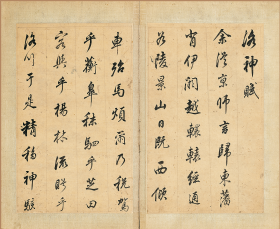 洛神賦
余從京師言歸東藩
背伊闕越轘轅經通
谷陵景山日既西傾
車殆馬煩爾乃稅駕
乎蘅皋秣駟乎芝田
容與乎楊林流眄乎
洛川于是精移神駭